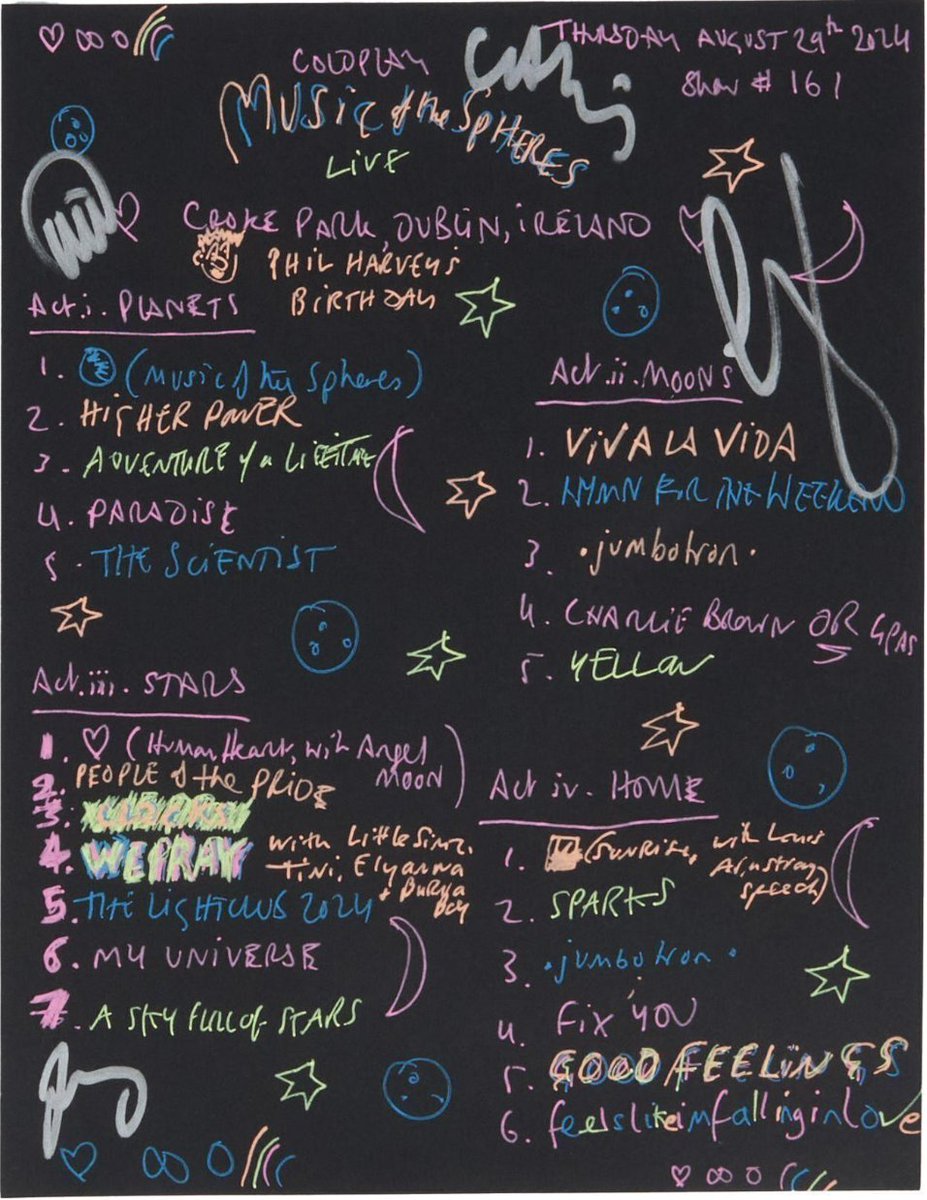 THURSDAY AUGUST 29th 2024
Show # 161
COLDPLAY
MUSIC of the SPHERES
LiVE
CROKE PARK, DUBLIN, iRELAND
PHIL HARVEYS
BiRTHDAY
Act.i. PLANETS
1. (Music of the Spheres)
2. HiGHER POWER
3. ADVENTURE of a LiFETIME
4. PARADISE
5. THE SCiENTIST
Act.ii. MOONS
1. ViVA LA ViDA
2. HYMN FOR THE WEEKEND
3. · jumbotron ·
4. CHARLIE BROWN OR GPAS
5. YELLOW
Act.iii. STARS
1. ♡ (Human Heart, with Angel
MOON)
2. PEOPLE of the PRiDE
3.
4. WE PRAY with Little Simz,
Tini, Elyanna
+ Burna
Boy
5. THE LiGHTCLUB 2024
6. MY UNiVERSE
7. A SKY FULL of STARS
Act iv. HOME
1. (SUNRiSE, with Louis
Armstrong
speech)
2. SPARKS
3. · jumbotron ·
4. Fix YOU
5. GOOD FEELiNGS
6. feelslikeimfallinginlove